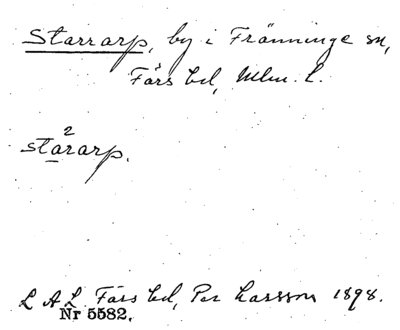 Starrarp, by i Fränninge sn,
Färs hd, Mlm. l.
2
stararp.
L A L Färs hd, Per Larsson 1898.
Nr 5582.